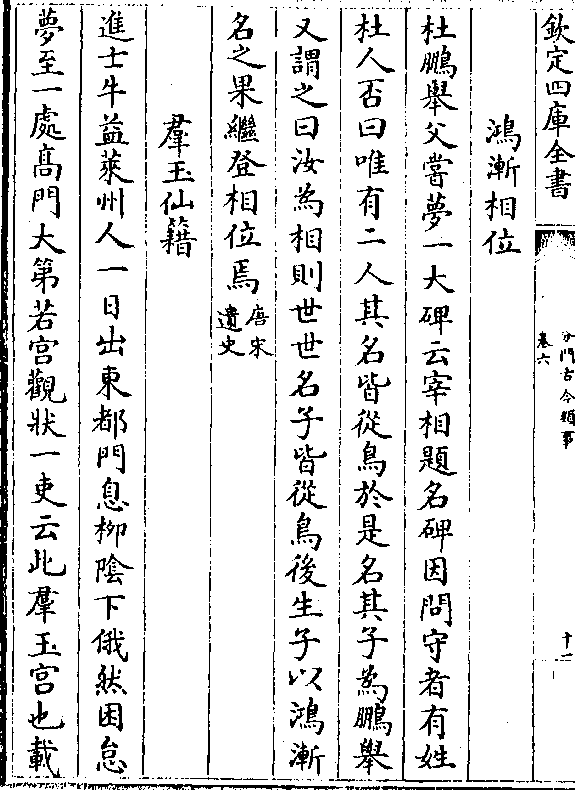 欽定四庫全書
分門古今類事
卷六
十一
鴻漸相位
杜鵬舉父嘗夢一大碑云宰相題名碑因問守者有姓
杜人否曰唯有二人其名皆從鳥於是名其子為鵬舉
又謂之曰汝為相則世世名子皆從鳥後生子以鴻漸
名之果繼登相位焉唐宋
遺史
羣玉仙籍
進士牛益萊州人一日出東都門息栁陰下俄然困怠
夢至一處髙門大第若宫觀狀一吏云此羣玉宫也載